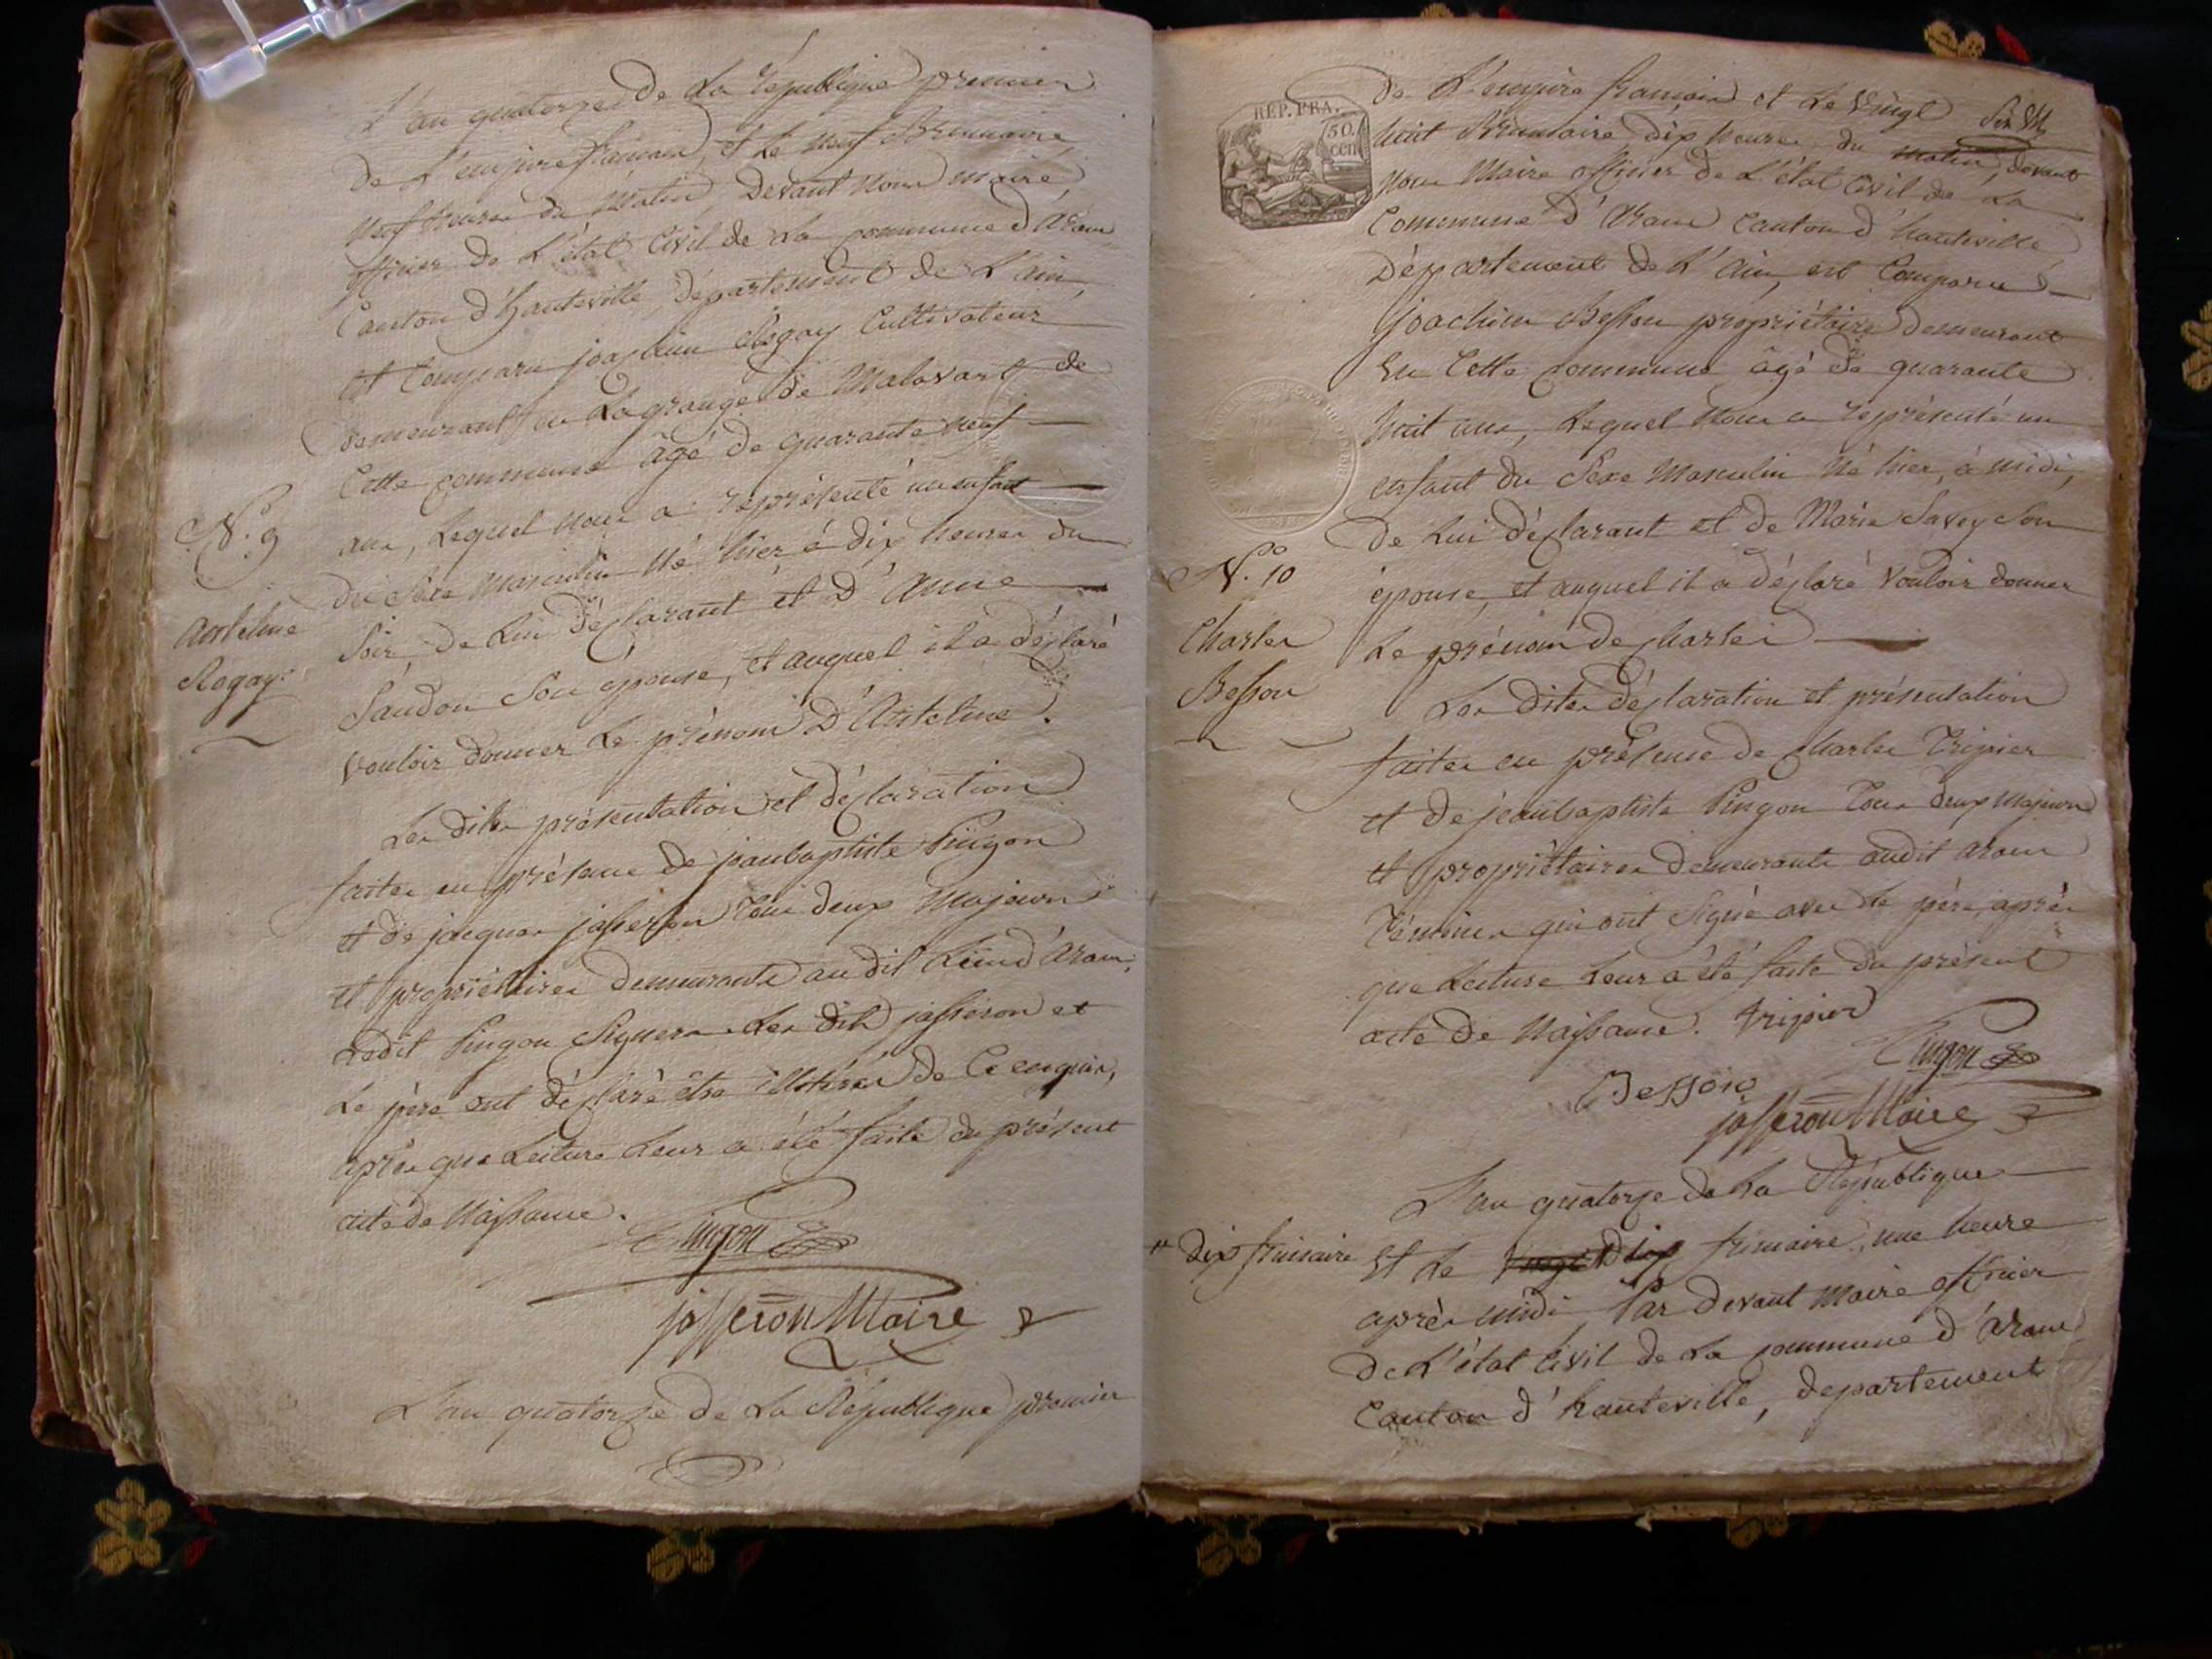 L'an quatorze de La république premier
de L'empire francais, et Le neuf Brumaire
neuf heures du Matin, Devant nous maire
officier de L'état Civil de La commune d'aranc
Canton d'hauteville, département de L'ain,
est Comparu joachim Rogay Cultivateur
demeurant en La grange de Malavart de
Cette commune âgé de quarante neuf
ans, Lequel nous a représenté un enfant
N.º 9
du Sexe Masculin né hier à dix heures du
Anstelme
Rogay
Soir, de Lui déclarant et d'Anne
Sandon Son épouse, et auquel il a déclaré
vouloir donner Le prénom d'Anstelme.
Les dites présentation et déclaration
faites en présence de jeanbaptiste Pingon
et de jacques jasseron tous deux Majeurs
et propriétaires demeurants au dit Lieu d'aranc,
Ledit Pingon Signera Les dits jasseron et
Le père ont déclaré être illitérés de Ce enquis,
après que Lecture Leur a été faite du présent
acte de Naissance.
Pingon
jasseron Maire
L'an quatorze de La République premier
REP. FRA.
50.
cen
de L'empire francais et Le vingt
huit Brumaire, dix heures du matin, devant
nous Maire officier de L'état Civil de La
Commune d'Aranc Canton d'hauteville
Département de L'Ain, est Comparu
joachim Besson propriétaire demeurant
En Cette commune âgé de quarante
huit ans, Lequel nous a représenté un
enfant du Sexe Masculin né hier, à midi,
de Lui déclarant et de Marie Savey Son
N.º 10
Charles
Besson
épouse, et auquel il a déclaré vouloir donner
Le prénom de Charles
Les dites déclaration et présentation
faites en présence de Charles Tripier
et de jeanbaptiste Pingon tous deux Majeurs
et propriétaires demeurants audit aranc
témoins qui ont Signé avec Le père, après
que Lecture Leur a été faite du présent
acte de Naissance. tripier
Pingon
Besson
jasseron Maire
L'an quatorze de La République
dix frimaire
Et Le dix frimaire, une heure
après midi, Par devant Maire officier
de L'état Civil de La commune d'aranc
Canton d'hauteville, departement